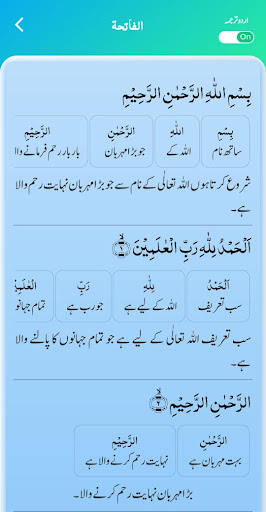 الفاتحة
اردو ترجمہ
On
بِسْمِ اللّٰهِ الرَّحْمٰنِ الرَّحِيْمِ
بِسْمِ اللّٰهِ الرَّحْمٰنِ الرَّحِيْمِ
ساتھ نام اللہ کے جو بڑا مہربان بار بار رحم فرمانے والا
شروع کرتا ہوں اللہ تعالٰی کے نام سے جو بڑا مہربان نہایت رحم والا
ہے۔
اَلْحَمْدُ لِلّٰهِ رَبِّ الْعٰلَمِيْنَ ۙ‏﴿۱﴾
اَلْحَمْدُ لِلّٰهِ رَبِّ الْعٰلَمِيْنَ
سب تعریف اللہ کے لیے ہے جو رب ہے تمام جہانو
سب تعریف اللہ تعالٰی کے لیے ہے جو تمام جہانوں کا پالنے والا
ہے۔
الرَّحْمٰنِ الرَّحِيْمِ ۙ‏﴿۲﴾
الرَّحْمٰنِ الرَّحِيْمِ
بہت مہربان ہے نہایت رحم کرنے والا ہے
بڑا مہربان نہایت رحم کرنے والا۔